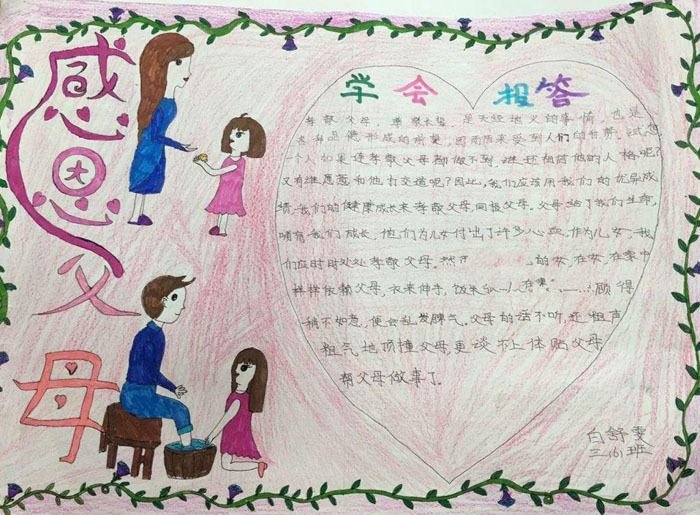 感恩父母
学会报答
孝敬父母，孝敬长辈，是天经地义的事情，也是
品德形成的前量，因而历来受到人们的
一个人如果连孝敬父母都做不到，谁还相信他的人格呢？
又有谁愿意和他打交道呢？因此，我们应该用我们的优异成
绩，我们的健康成长来孝敬父母，回报父母。父母给了我们生命，
哺育我们成长，他们为儿女付出了许多心血，作为儿女，我
们应时时处处孝敬父母。然 的女，在女，在家中
样样依赖父母，衣来伸手，饭来 顾得
稍不如意，便会乱发脾气。父母的话不听，还粗声
粗气地顶撞父母，更谈不上体贴父母
帮父母做事了。
白舒雯
三(6)班